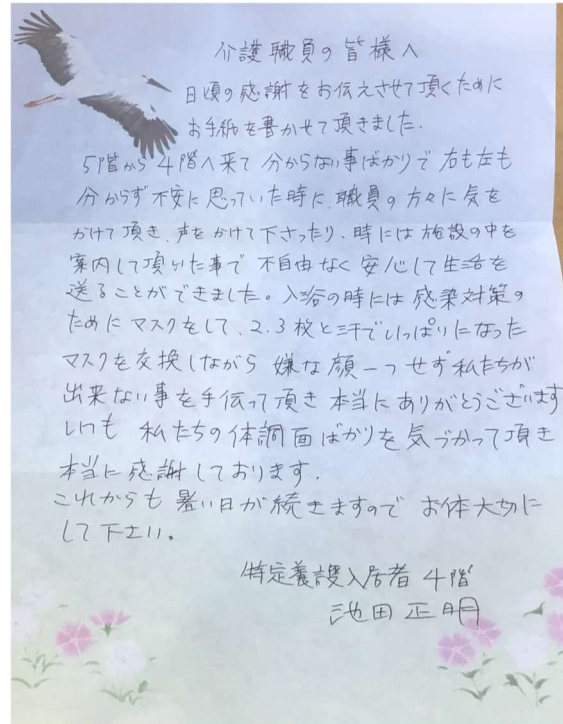 介護職員の皆様へ
日頃の感謝をお伝えさせて頂くために
お手紙を書かせて頂きました.
5階から4階へ来て分からない事ばかりで右も左も
分からず不安に思っていた時に、職員の方々に気を
かけて頂き、声をかけて下さったり、時には施設の中を
案内して頂いた事で不自由なく安心して生活を
送ることができました。入浴の時には感染対策の
ためにマスクをして、2.3枚と汗でいっぱりになった
マスクを交換しながら嫌な顔一つせず私たちが
出来ない事を手伝って頂き本当にありがとうございます
いつも私たちの体調面ばかりを気づかって頂き
本当に感謝しております.
これからも暑い日が続きますのでお体大切に
して下さい。
特定養護入居者4階
池田正明